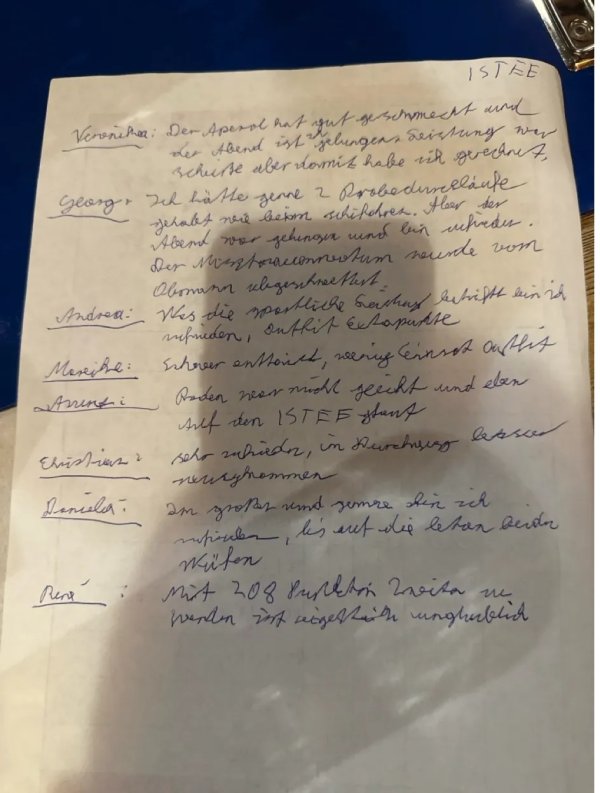 ISTEE
Veronika: Der Aperol hat gut geschmeckt und
der Abend ist gelungen, Leistung war
scheiße aber damit habe ich gerechnet,
Georg: Ich hätte gerne 2 Probedurchläufe
gehabt wie beim schifahren. Aber der
Abend war gelungen und bin zufrieden.
Der wurde vom
Obmann abgeschmettert.
Andrea: Was die sportliche Leistung betrifft bin ich
zufrieden, outfit Extrapunkte
Mareike: Schwer enttäuscht, wenig Einsatz Outfit
Boden war nicht geeicht und eben
Auf den ISTEE
Christian: sehr zufrieden, in Durchgang letzter
Daniela: Im großen und ganzen bin ich
zufrieden, bis auf die letzen beiden
René: Mit 208 Punkten Zweiter zu
werden ist eigentlich unglaublich